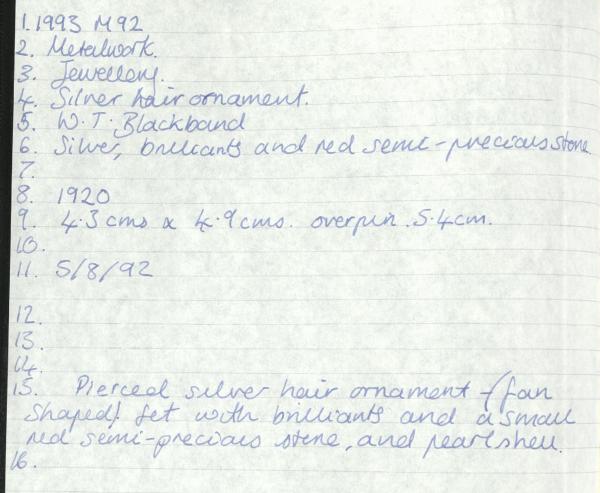 1. 1993 M92
2. Metalwork.
3. Jewellery.
4. Silver hair ornament.
5. W.T. Blackband
6. Silver, brilliants and red semi-precious stone
7.
8. 1920
9. 4.3 cms x 4.9 cms. overpin. 5.4cm.
10.
11. 5/8/92
12.
13.
14.
15. Pierced silver hair ornament - (fan
shaped) set with brilliants and a small
red semi-precious stone, and pearl shell.
16.